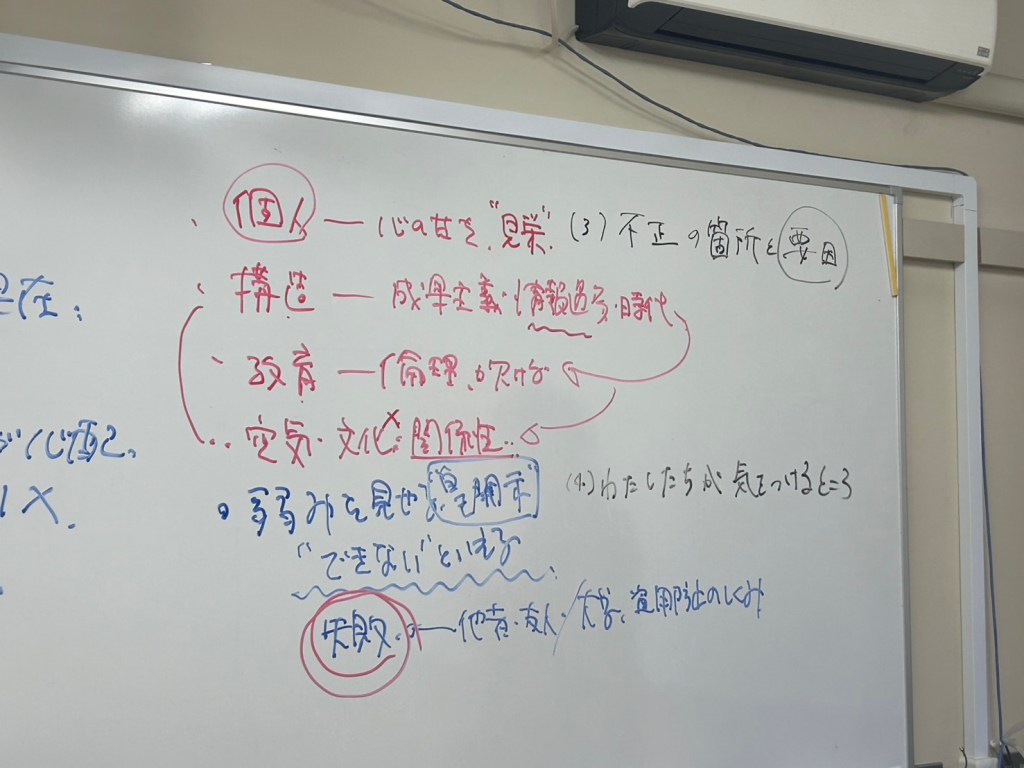 (3) 不正の箇所と要因
・個人 — 心の甘さ、"見栄"、
・構造 — 成果主義・情報過多・時代
・教育 — 倫理、欠ける
‥空気・文化・関係性‥
在;
心配、
X.
・弱みを見せ"自己開示"
(4) わたしたちが気をつけるところ
"できない"といえる
失敗 — 他者・友人/大学、盗用防止のしくみ